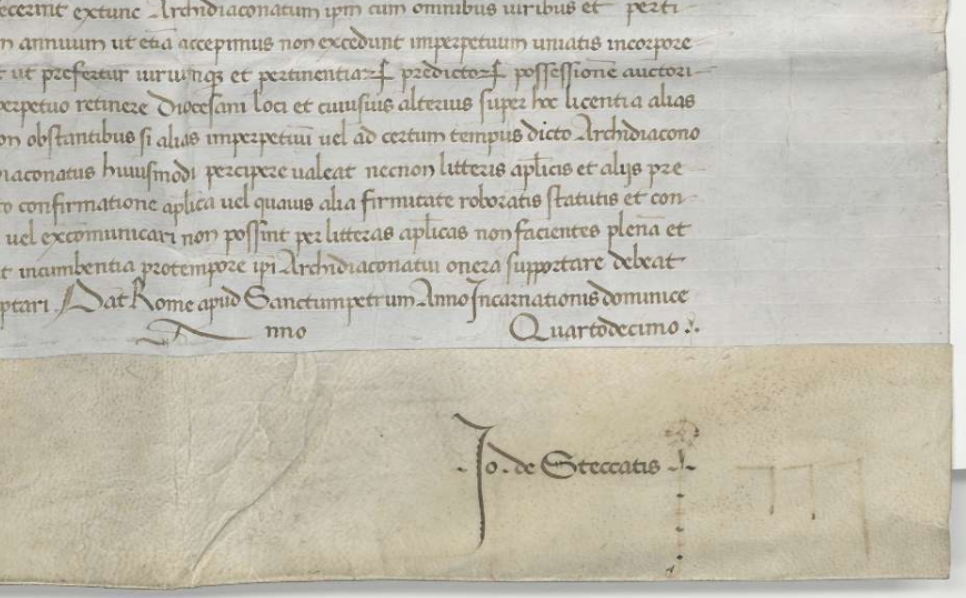 extunc Archidiaconatum ipm cum omnibus iuribus et perti-
annuum ut etia accepimus non excedunt imperpetuum uniatis incorpore
ut prefertur iuriumqz et pertinentiaꝝ predictoꝝ possessione auctori-
perpetuo retinere Diocesani loci et cuiusuis alterius super hoc licentia alias
on obstantibus si alias imperpetuū uel ad certum tempus dicto Archidiacono
iaconatus huiusmodi percipere ualeat necnon litteris aplicis et alijs pre
confirmatione aplica uel quauis alia firmitate roboratis statutis et con-
uel excomunicari non possint per litteras aplicas non facientes plenā et
incumbentia protempore ipi Archidiaconatui onera supportare debeat
ptari. Dat Rome apud Sanctumpetrum Anno Incarnationis dominice
Anno Quartodecimo
Jo. de Steccatis